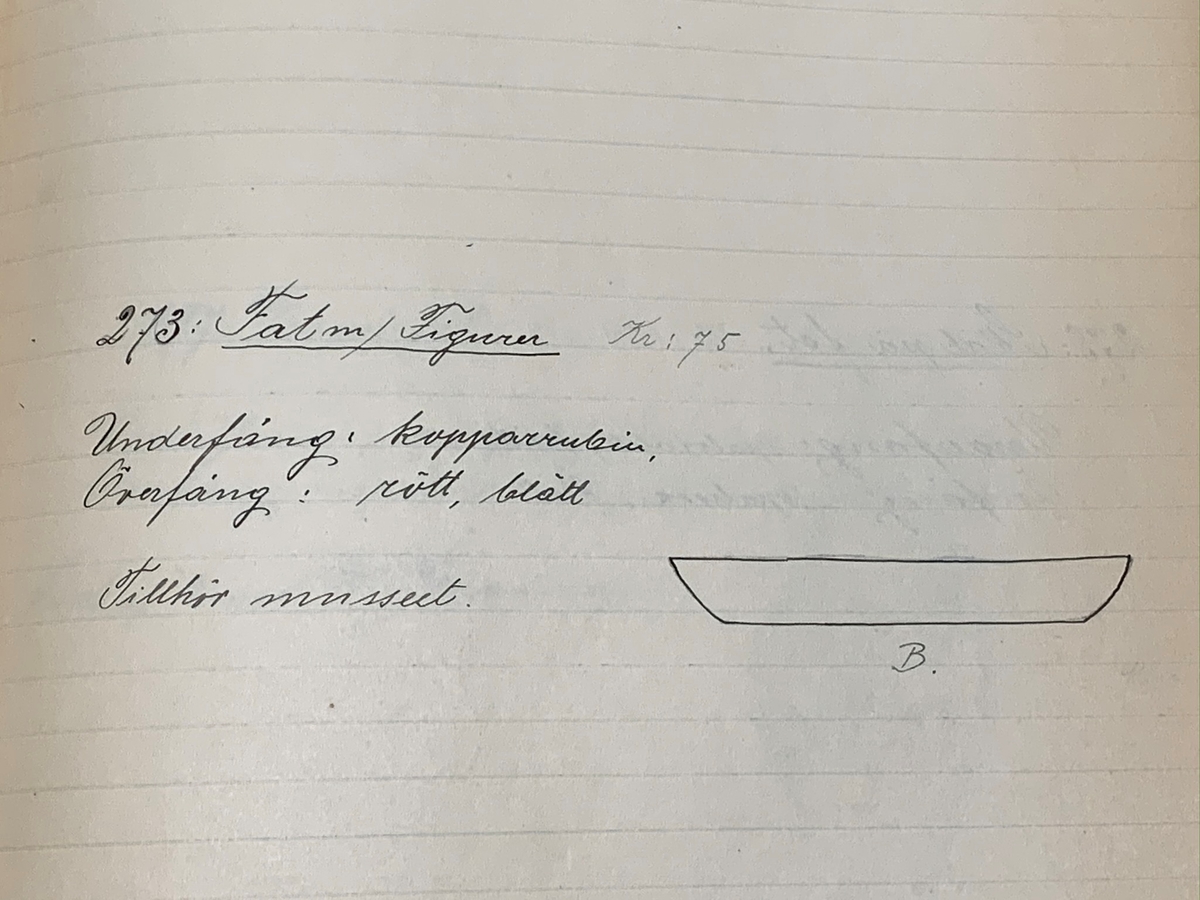 273: Fat m/ Figurer Kr: 75
Underfång: kopparrubin,
Överfång: rött, blått
Tillhör musseet.
B.